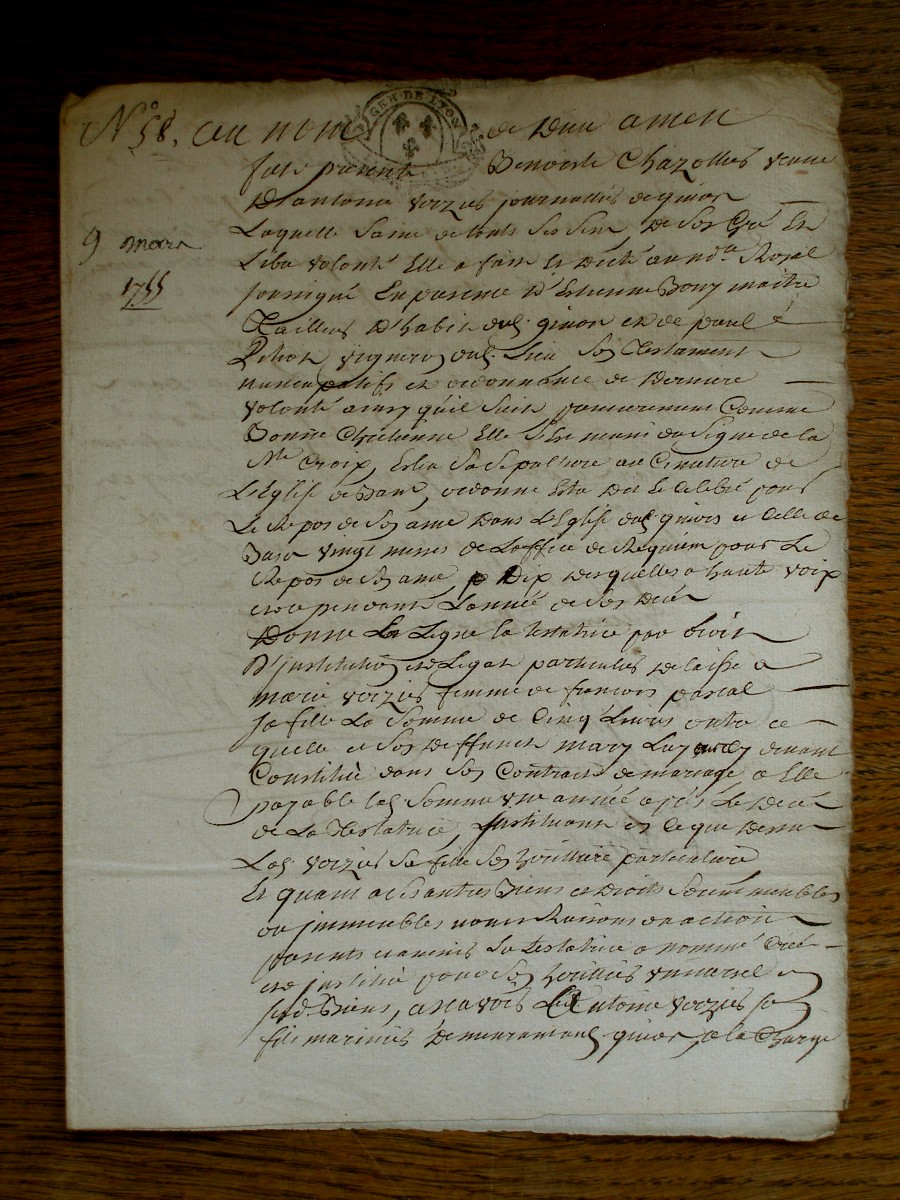 GEN. DE LYON
N° 58. au nom de Dieu amen
fut presente Benoiste Chazelles veuve
D'antoine verzies journallier de givors
Laquelle saine de touts ses sens De Son Gré Et
Libre volonté Elle a fait Et Dicté au nore Royal
9 mars
1755
soussigné En presence D'Estienne Bony maitre
Tailleur D'habit dud. givors et de paul
vigneron dud. Lieu Son Testament
nuncupatifs et ordonnance de Derniere
volonté ainsy qu'il suit, premierement Comme
Bonne Chretienne Elle S'Est munie du Signe de la
Ste Croix, Eslu Sa Sepulture au Cimetiere de
L'Eglise de Bans, ordonne Estre Dit Et Celebré pour
Le Repos de Son ame Dans L'Eglise dud. givors et Celle de
Bans vingt messes de L'office de Requiem pour Le
Repos de Son ame, Dix desquelles a haute voix
et ce pendant L'année de Son Decés
Donne Et Legue la testatrice par Droit
D'institution et Legat particulier delaisse a
marie verzies femme de francois pascal
sa fille La Somme de Cinq Livres outre ce
quelle et Son Deffunct mary Luy ont cy devant
Constitué dans Son Contract de mariage, a Elle
payable lad. Somme une année aprés Le Decés
de La Testatrice, Instituant en ce que Dessus
Lad. verzies Sa fille Son heritiere particuliere
Et quant a Ses autres Biens et Droits Soient meubles
ou immeubles noms Raisons et actions
presents et avenir La testatrice a nommé Créé
et institué pour Son heritier universel
sesd. Biens, a scavoir Led. Antoine verzies Son
fils marinier Demeurant aud. givors, a la Charge